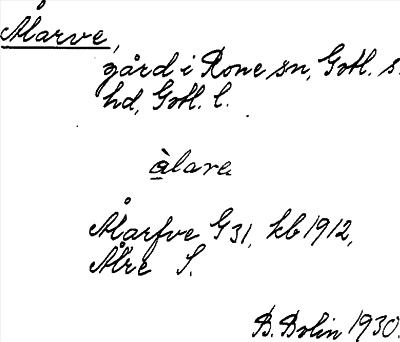 Ålarve,
gård i Rone sn, Gotl. s.
hd, Gotl. l.
àlarε
Ålarfve G 31, kb 1912,
Alre S.
B. Bolin 1930.